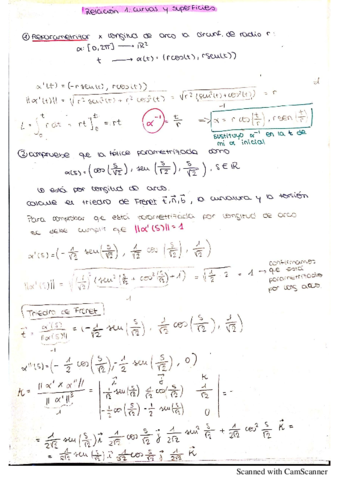 Relación 1: curvas y superficies
① Reparametrizar x longitud de arco la circunf. de radio r:
α: [0, 2π] ⟶ ℝ²
t ⟶ α(t) = (r cos(t), r sen(t))
α'(t) = (-r sen(t), r cos(t))
||α'(t)|| = √(r² sen²(t) + r² cos²(t)) = √(r² (sen²(t) + cos²(t))) = r
1
L = ∫₀ᵗ r dt = rt]₀ᵗ = rt α⁻¹ = t/r ⟹ x = r cos(t/r), r sen(t/r)
sustituyo α⁻¹ en la t de
mi α inicial
② Compruebe que la hélice parametrizada como
α(s) = (cos(s/√2), sen(s/√2), s/√2), s ∈ ℝ
lo está por longitud de arco.
Calcule el triedro de Frenet t, n, b, la curvatura y la torsión
Para comprobar que está parametrizada por longitud de arco
se debe cumplir que ||α'(s)|| = 1
α'(s) = (-1/√2 sen(s/√2), 1/√2 cos(s/√2), 1/√2)
||α'(s)|| = √((1/√2)² (sen²(s/√2) + cos²(s/√2) + 1)) = √(1/2 · 2) = 1 →
confirmamos
que está
parametrizada
por long. arco
Triedro de Frenet
t = α'(s)/||α'(s)|| = (-1/√2 sen(s/√2), 1/√2 cos(s/√2), 1/√2)
α''(s) = (-1/2 cos(s/√2), -1/2 sen(s/√2), 0)
K = ||α' x α''||/||α'||³ = | i j K | -1/√2 sen(s/√2) 1/√2 cos(s/√2) 1/√2 | -1/2 cos(s/√2) -1/2 sen(s/√2) 0 | =
= 1/2√2 sen(s/√2) i 1/2√2 cos(s/√2) j 1/2√2 sen² s/√2 + 1/2√2 cos² s/√2 K =
= 1/2√2 sen(s/√2) i 1/2√2 cos(s/√2) j 1/2√2 K
Scanned with CamScanner